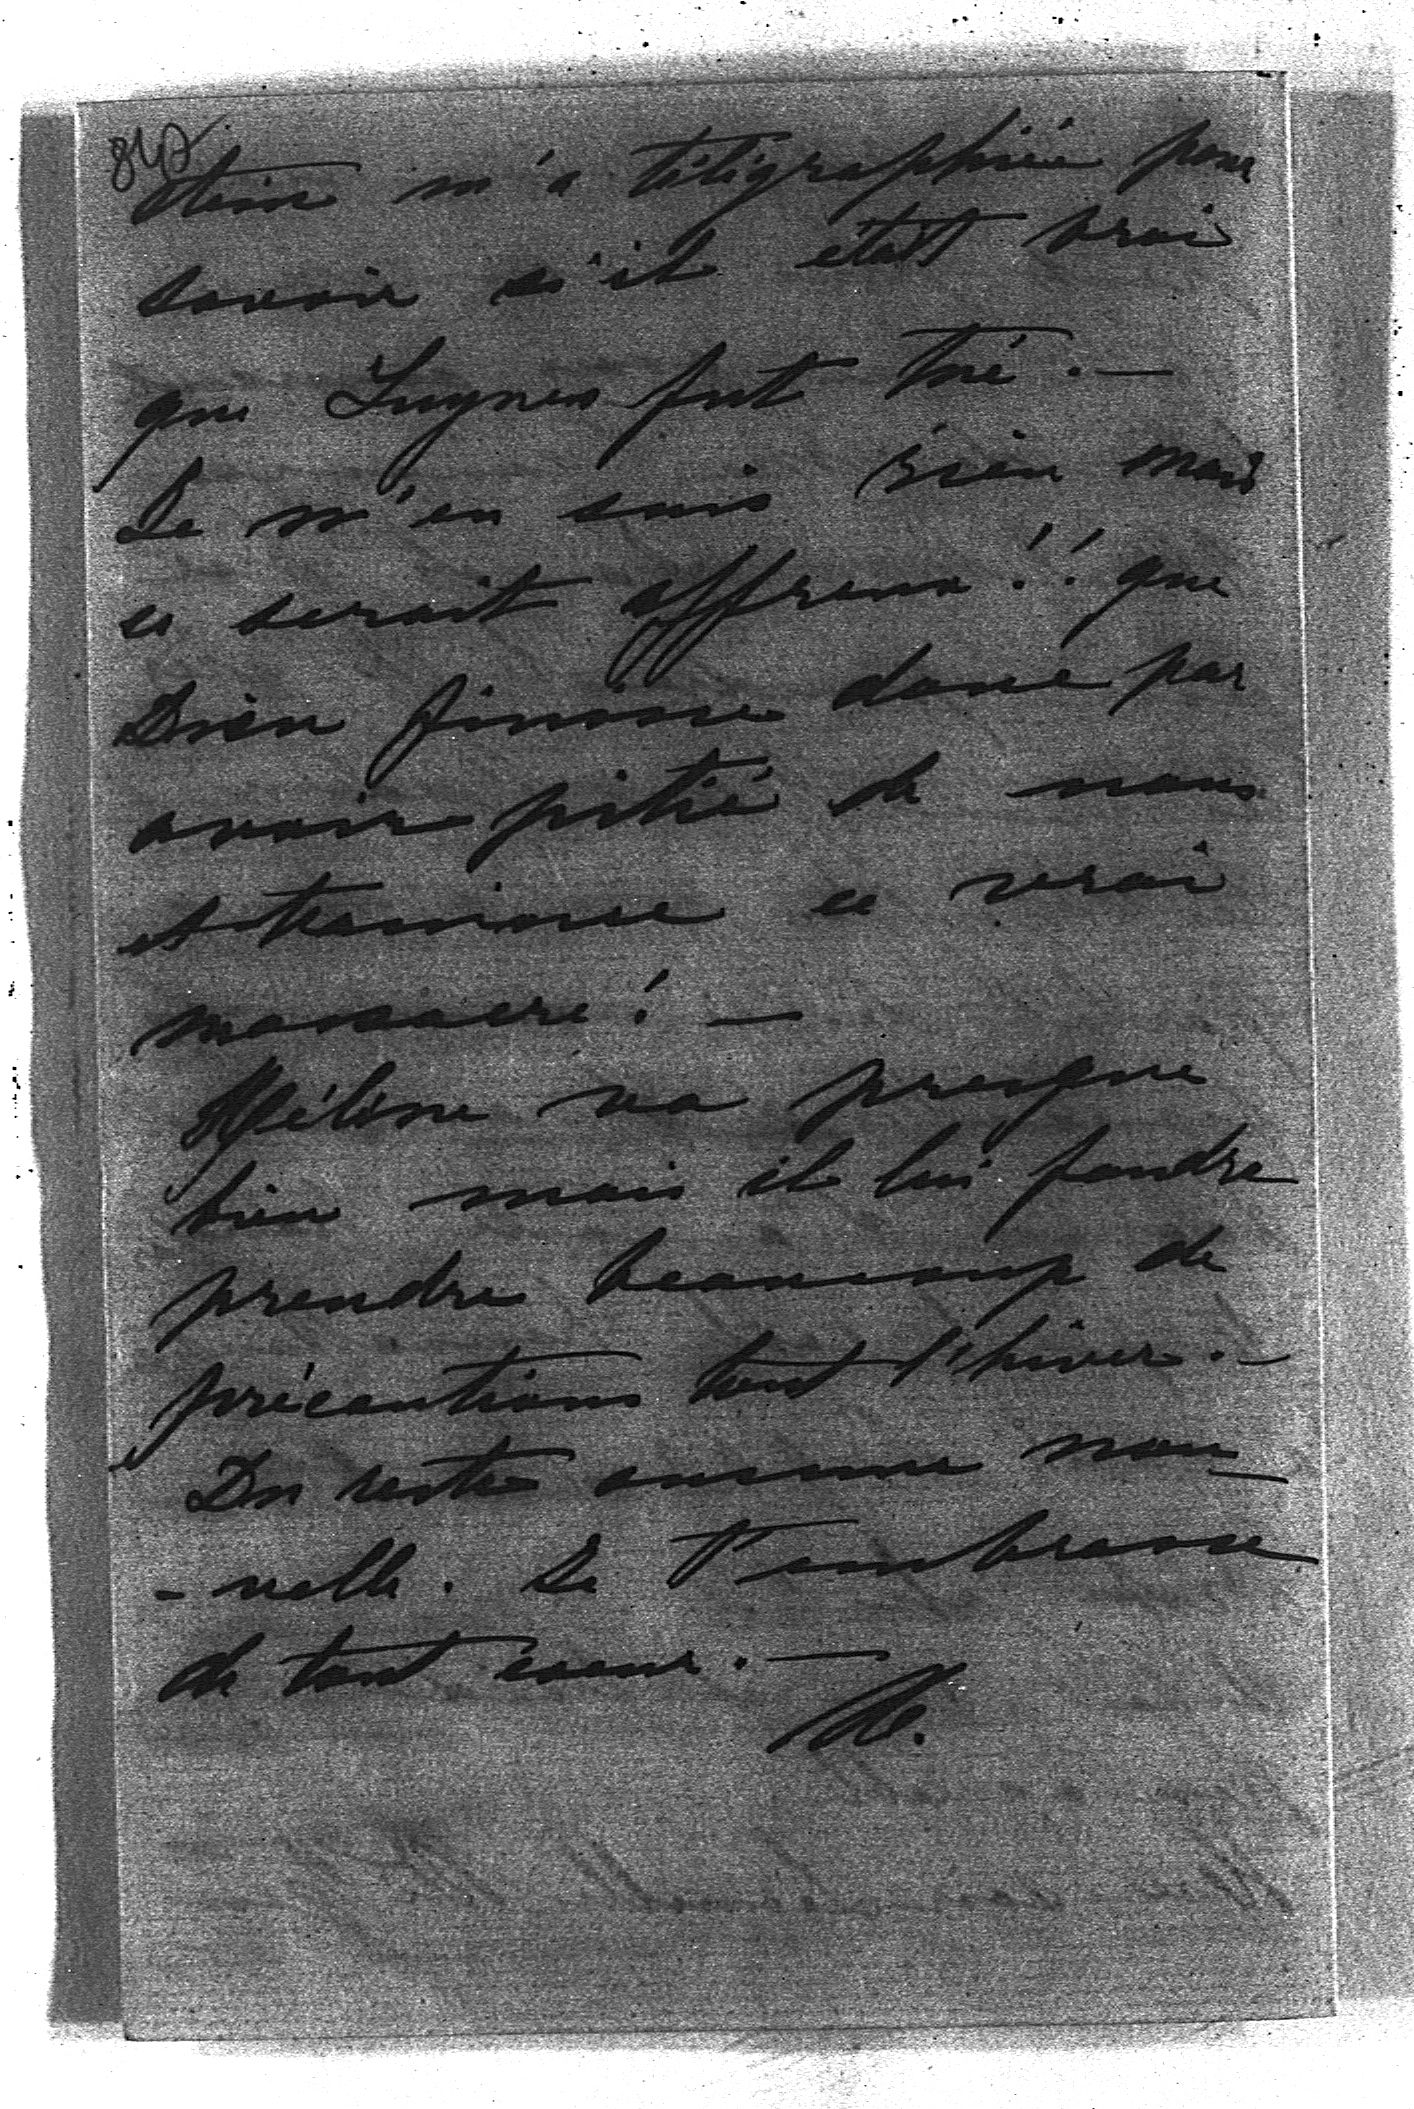 -tine m'a télégraphiée pour
savoir s'il était vrai
que Luynes fut tué. —
Je n'en sais rien mais
ce serait affreux!! que
Dieu finisse donc par
avoir pitié de nous
et termine ce vrai
massacre! —
Hélène va presque
bien mais il lui faudra
prendre beaucoup de
précautions tout l'hiver. —
Du reste aucune nou-
-velle. Je t'embrasse
de tout coeur. —